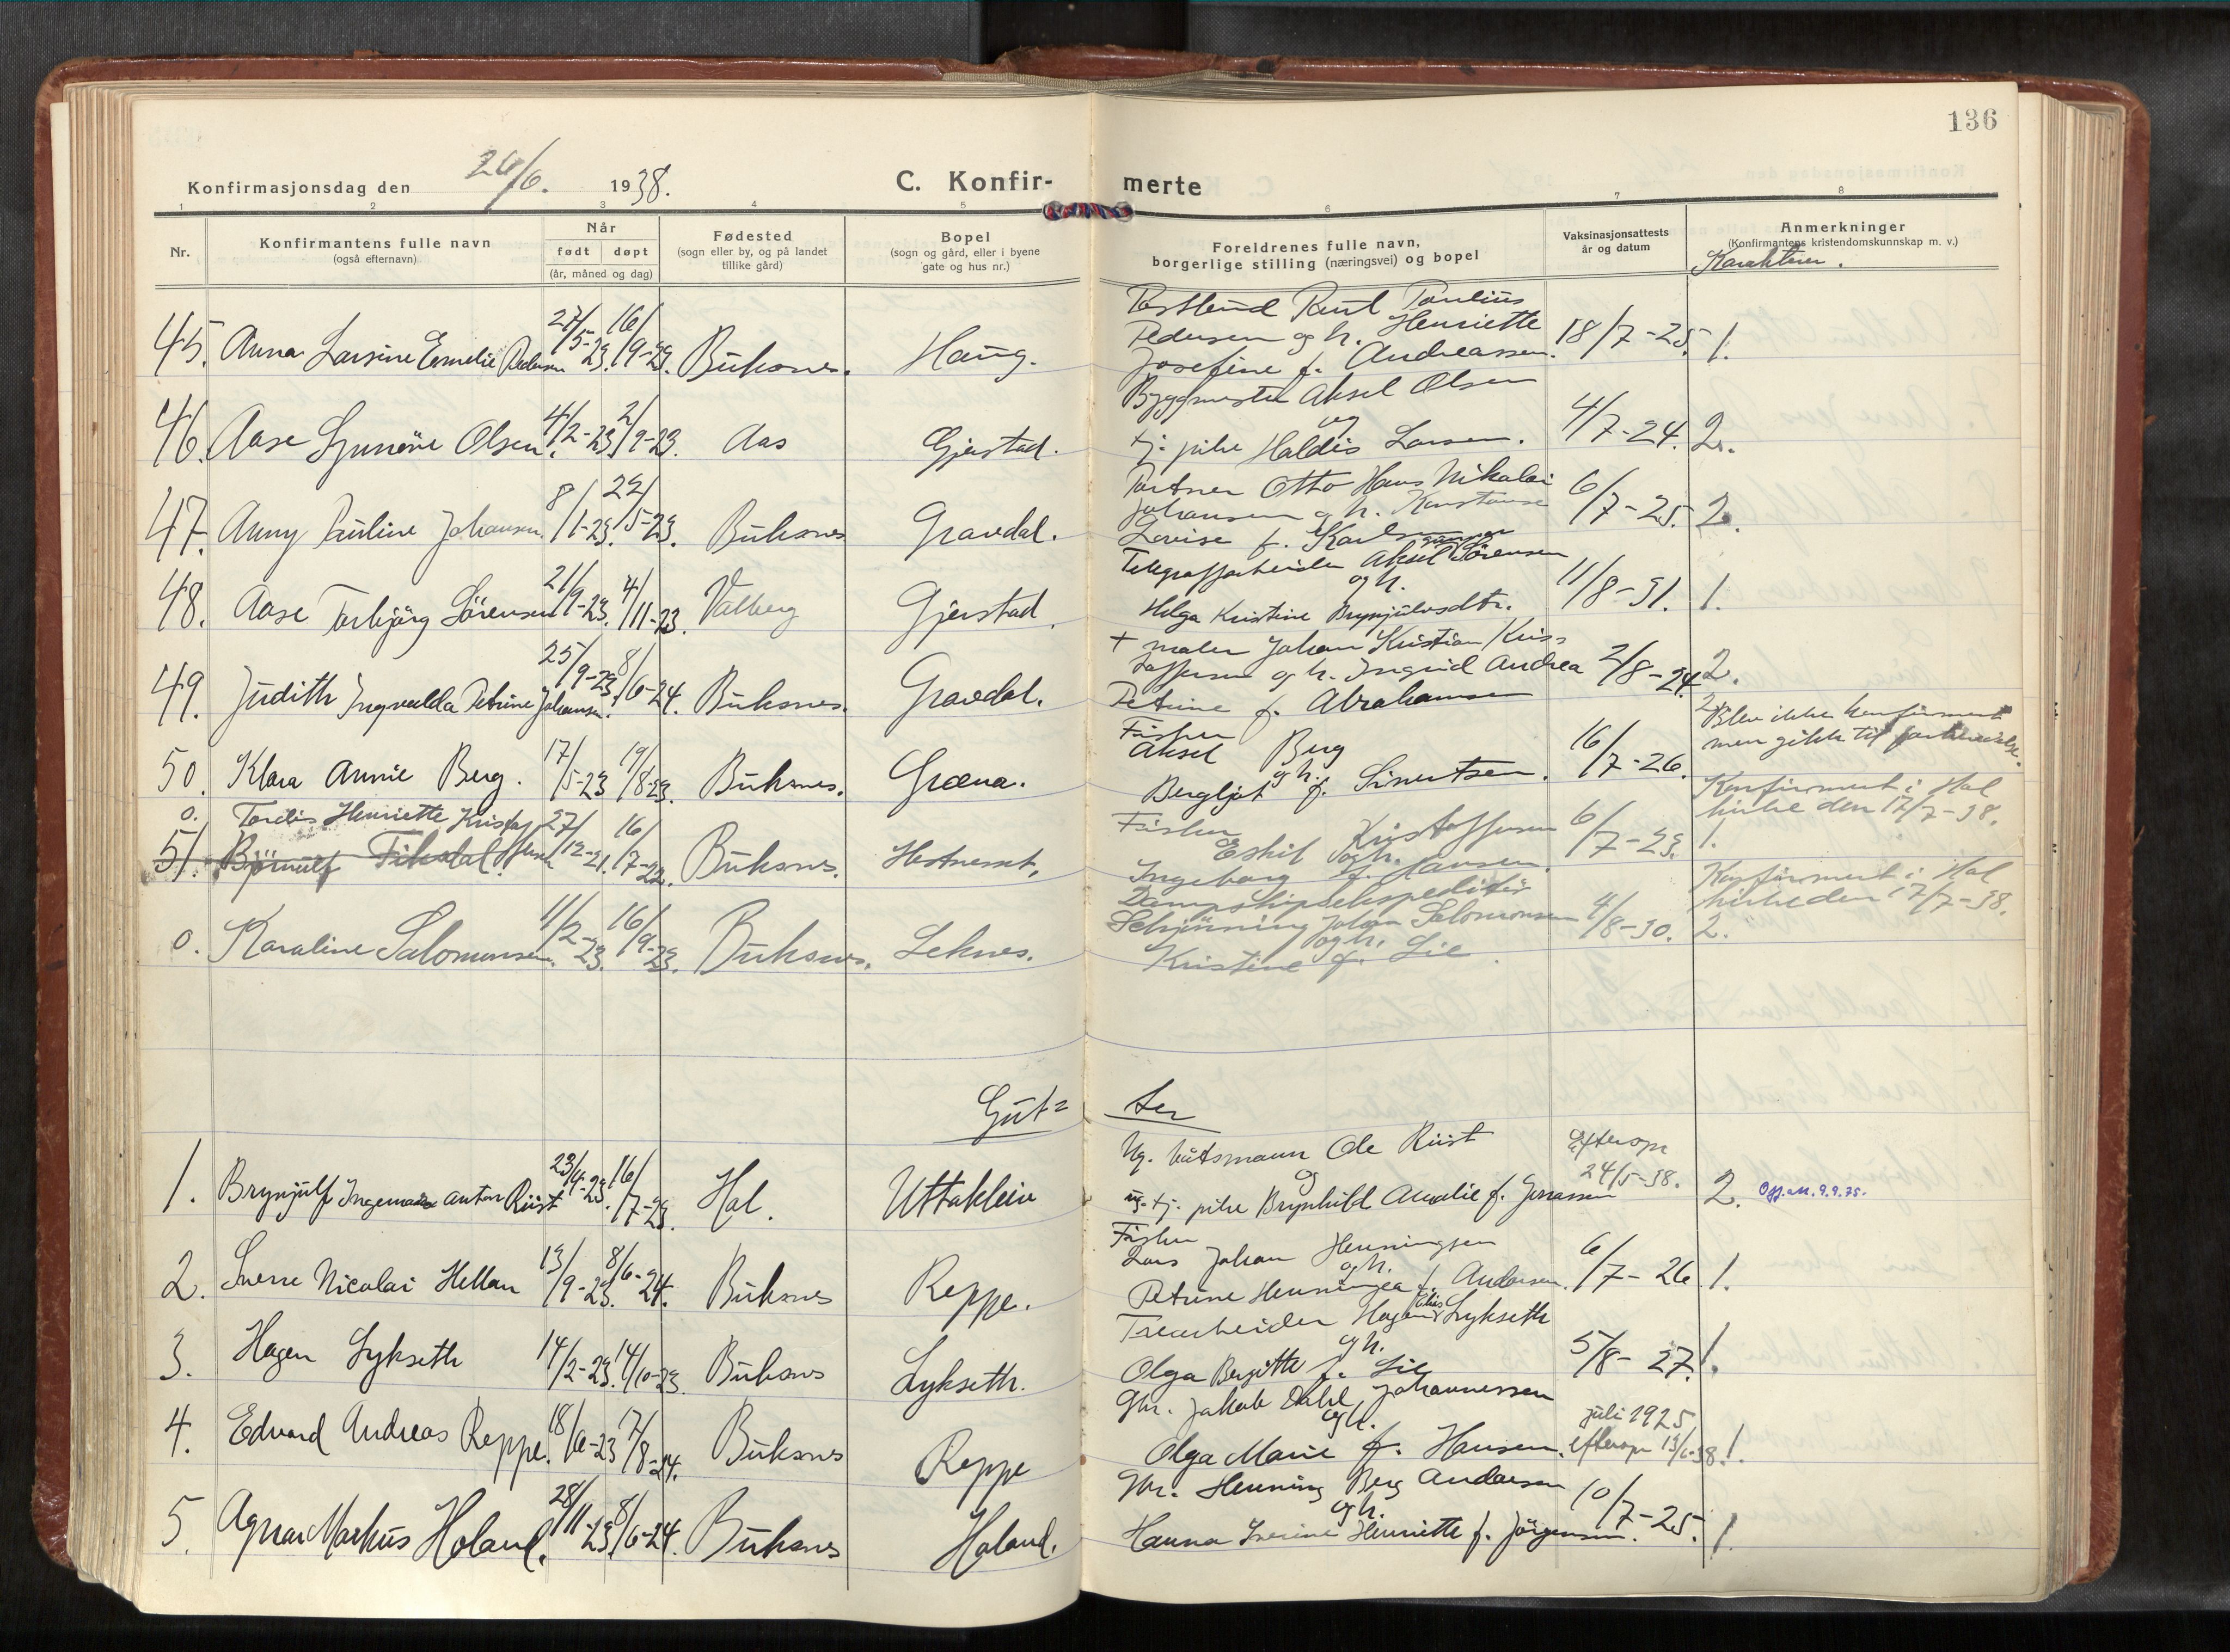 136
Konfirmasjonsdag den 26/6. 1938.
C. Konfir- merte
1 2 3 4 5 6 7 8
Nr.
Konfirmantens fulle navn
(også efternavn)
Når
født døpt
(år, måned og dag)
Fødested
(sogn eller by, og på landet
tillike gård)
Bopel
(sogn og gård, eller i byene
gate og hus nr.)
Foreldrenes fulle navn,
borgerlige stilling (næringsvei) og bopel
Vaksinasjonsattests
år og datum
Anmerkninger
(Konfirmantens kristendomskunnskap m. v.)
Karakterer.
45. Anna Larsine Emelie Pedersen 27/5-23. 16/9-23. Buksnes. Haug.
Paul Paulius
Pedersen og h. Henriette
Josefine f. Andreassen. 18/7-25. 1.
46. Aase Synnöve Olsen. 4/2-23. 2/9-23. Aas Gjerstad.
Byggmester Aksel Olsen
og
tj. pike Haldis Larsen. 4/7-24. 2.
47. Anny Pauline Johansen. 8/1-23. 22/5-23. Buksnes Gravdal.
Otto Hans Nikolai
Johansen og h. Konstanse
Lovise f. 6/7-25. 2.
48. Aase Torbjörg Sörensen 21/9-23. 4/11-23. Valberg Gjerstad.
Telegrafarbeider Aksel Sörensen
og h.
Helga Kristine Brynjulvsdtr. 11/8-31. 1.
49. Judith Ingvalda Petrine Johansen. 25/9-23. 8/6-24. Buksnes. Gravdal.
+ maler Johan Kristian Kris=
toffersen og h. Ingrid Andrea
Petrine f. Abrahamsen 2/8-24 2.
50. Klara Annie Berg. 17/5-23 19/8-23. Buksnes. Græna.
Fisker
Aksel Berg
og h.
Bergljot f. Sivertsen. 16/7-26.
2 Blev ikke konfirmert
men gikk til forberedelse.
0. Tordis Henriette Kristoffersen 27/12-21. 16/7-22. Buksnes. Hestneset.
51. Bjørnulf Fiksdal.
Fisker
Eskil Kristoffersen
og h.
Ingeborg f. Hansen. 6/7-23.
Konfirmert i Hol
kirke den 17/7-38.
1.
0. Karoline Salomonsen. 11/2-23. 16/9-23. Buksnes. Leknes.
Dampskipsekspeditör
Schjönning Johan Salomonsen
og h.
Kristine f. Lie. 4/8-30.
Konfirmert i Hol
kirke den 17/7-38.
2.
Gut= ter
1. Brynjulf Ingemann Anton Rüst 23/4-23. 16/7-23. Hol. Uttakleiv
Ug. båtsmann Ole Rüst
og
ug. tj. pike Brynhild Amalie f. Jonassen
Efteropn
24/5-38. 2. Opf. att. 9.9.75.
2. Sverre Nicolai Hellan 13/9-23. 8/6-24. Buksnes Reppe.
Fisker
Lars Johan Henningsen
og h.
Petrine Henningea f. Andersen. 6/7-26 1.
3. Hagen Lykseth 14/2-23. 14/10-23. Buksnes Lykseth.
Trearbeider Hagen Lykseth
og h.
Olga Bergitte f. Lie 5/8-27. 1.
4. Edvard Andreas Reppe. 18/10-23 17/8-24. Buksnes Reppe
Gbr. Jakob Dahl Johannessen
og h.
Olga Marie f. Hansen.
juli 1925
efteropn 13/6-38. 1.
5. Agnar Markus Holand. 28/11-23. 8/6-24. Buksnes Holand.
Gbr. Henning Berg Andersen
og h.
Hanna Iverine Henriette f. Jörgensen. 10/7-25. 1.